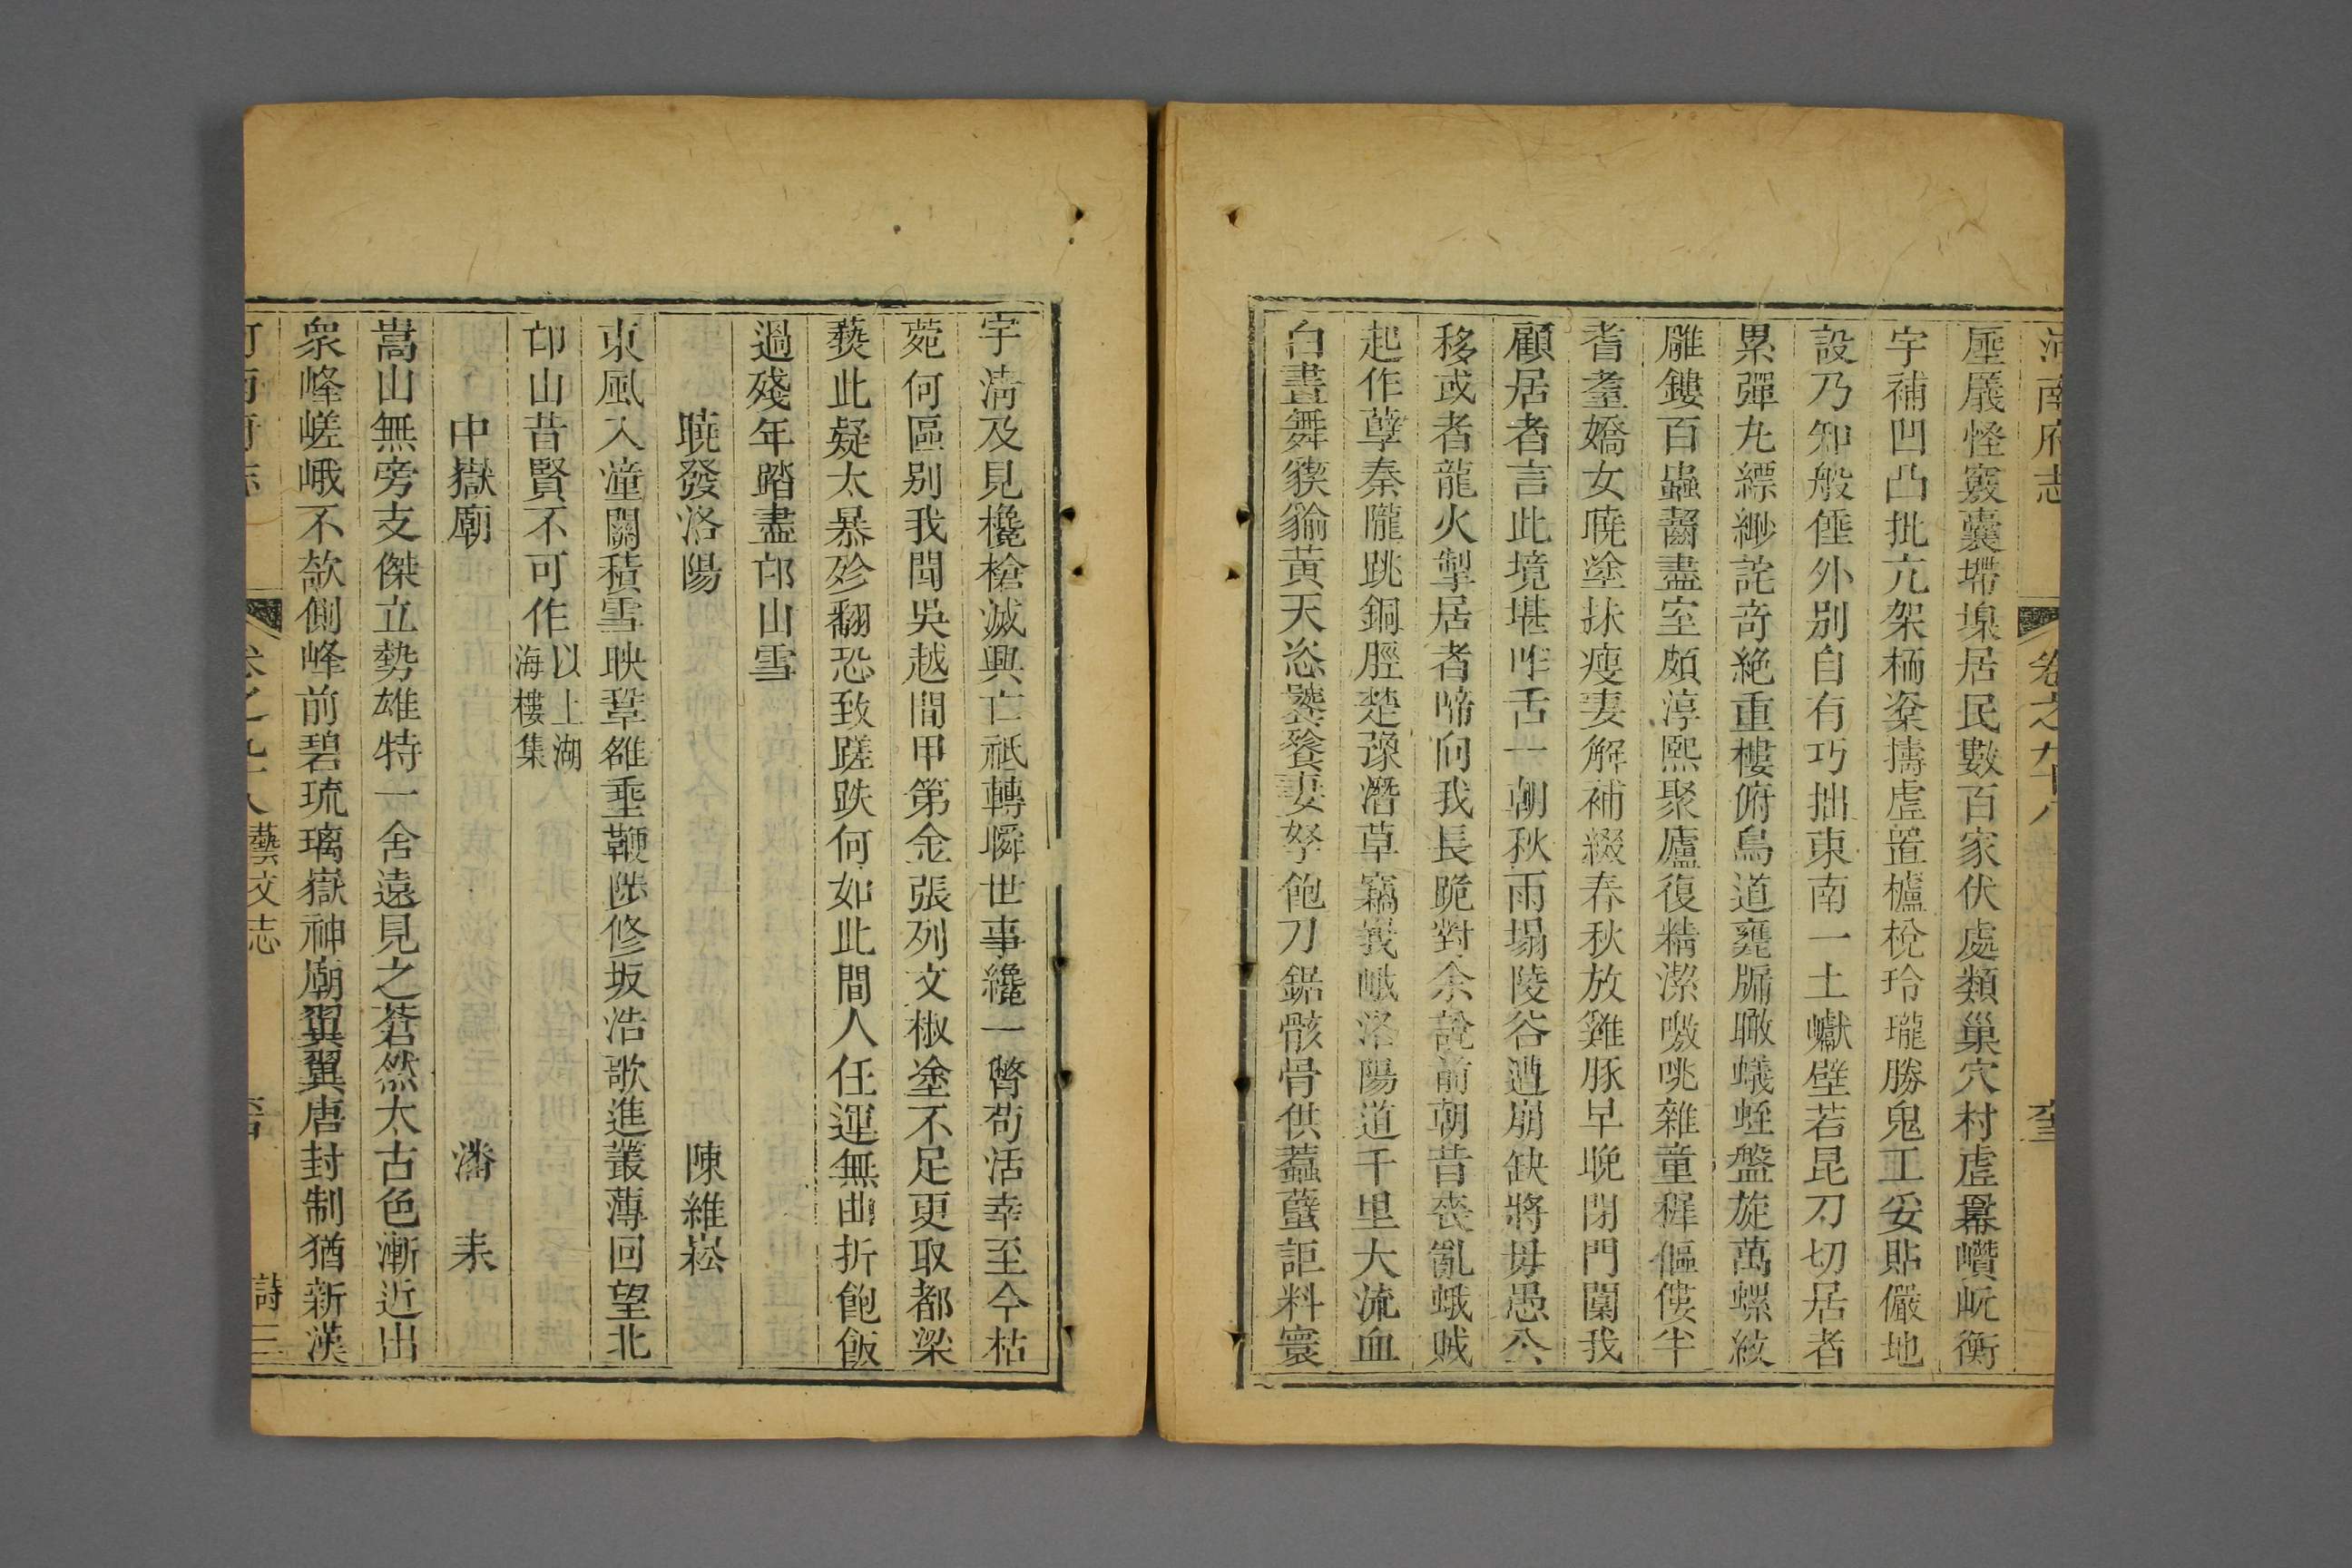 河南府志
卷之九十八
厜㕒怪竅囊墆堄居民數百家伏處類巢穴村虛冪巑岏衡
宇補凹凸批亢架栭楶擣虛置櫨梲玲瓏勝鬼工妥貼儼地
設乃知般倕外別自有巧拙東南一土巘壁若昆刀切居者
累彈丸縹緲詫奇絕重樓俯鳥道甕牖瞰蟻蛭盤旋萬螺紋
雕鏤百蟲齧盡室頗淳熙聚廬復精潔嗷咷雜童穉傴僂半
耆耋嬌女曉塗抹瘦妻解補綴春秋放雞豚早晚閉門闑我
顧居者言此境堪咋舌一朝秋雨塌陵谷遭崩缺將毋愚公
移或者龍火掣居者啼向我長跪對余說前朝昔喪亂蛾賊
起作孽秦隴跳銅脛楚豫潛草竊峩峨洛陽道千里大流血
白晝舞貘貐黃天恣饕餮妻孥飽刀鋸骸骨供蠚蠆詎料寰
宇淸及見欃槍滅興亡祇轉瞬世事纔一瞥苟活幸至今枯
菀何區別我聞吳越間甲第金張列文椒塗不足更取都梁
爇此疑太暴殄翻恐致蹉跌何如此間人任運無曲折飽飯
過殘年踏盡邙山雪
曉發洛陽 陳維崧
東風入潼關積雪映鞏雒垂鞭陟修坂浩歌進叢薄回望北
邙山昔賢不可作以上湖海樓集
中嶽廟 潘耒
嵩山無旁支傑立勢雄特一舍遠見之蒼然太古色漸近出
衆峰嵯峨不欹側峰前碧琉璃嶽神廟翼翼唐封制猶新漢
藝文志
詩三